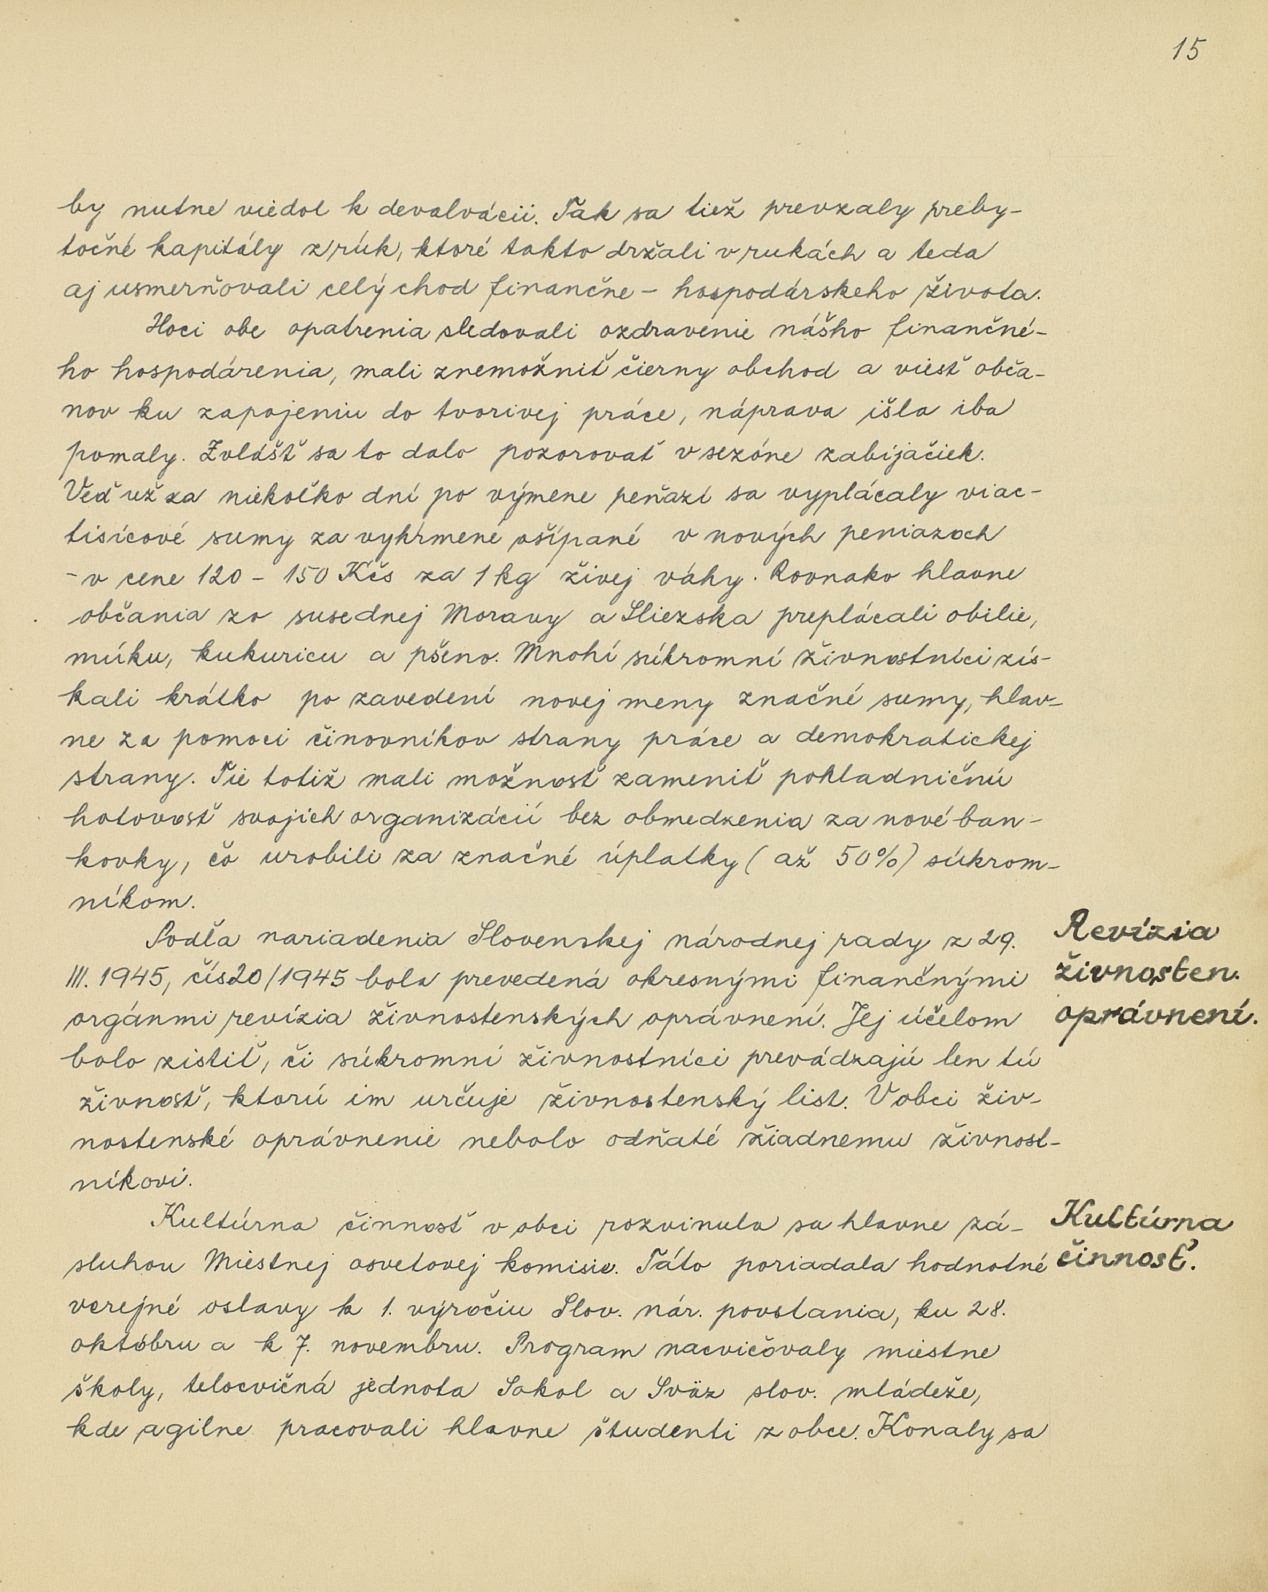 15
by nutne viedol k devalvácii. Tak sa tiež prevzaly preby-
točné kapitály z rúk, ktoré takto držali v rukách a teda
aj usmerňovali celý chod finančne - hospodárskeho života.
Hoci obe opatrenia sledovali ozdravenie nášho finančné-
ho hospodárenia, mali znemožniť čierny obchod a viesť obča-
nov ku zapojeniu do tvorivej práce, náprava išla iba
pomaly. Zvlášť sa to dalo pozorovať v sezóne zabíjačiek.
Veď už za niekoľko dní po výmene peňazí sa vyplácaly viac-
tisícové sumy za vykŕmené ošípané v nových peniazoch
- v cene 120 - 150 Kčs za 1 kg živej váhy. Rovnako hlavne
občania zo susednej Moravy a Sliezska preplácali obilie,
múku, kukuricu a pšeno. Mnohí súkromní živnostníci zís-
kali krátko po zavedení novej meny značné sumy, hlav-
ne za pomoci činovníkov strany práce a demokratickej
strany. Tie totiž mali možnosť zameniť pokladničnú
hotovosť svojich organizácií bez obmedzenia za nové ban-
kovky, čo urobili za značné úplatky (až 50%) súkrom-
níkom.
Podľa nariadenia Slovenskej národnej rady z 29.
III. 1945, čís20/1945 bola prevedená okresnými finančnými
orgánmi revízia živnostenských oprávnení. Jej účelom
bolo zistiť, či súkromní živnostníci prevádzajú len tú
živnosť, ktorú im určuje živnostenský list. V obci živ-
nostenské oprávnenie nebolo odňaté žiadnemu živnost-
níkovi.
Revízia
živnosten.
oprávnení.
Kultúrna činnosť v obci rozvinula sa hlavne zá-
sluhou Miestnej osvetovej komisie. Táto poriadala hodnotné
verejné oslavy k 1. výročiu Slov. nár. povstania, ku 28.
októbru a k 7. novembru. Program nacvičovaly miestne
školy, telocvičná jednota Sokol a Sväz slov. mládeže,
kde agilne pracovali hlavne študenti z obce. Konaly sa
Kultúrna
činnosť.